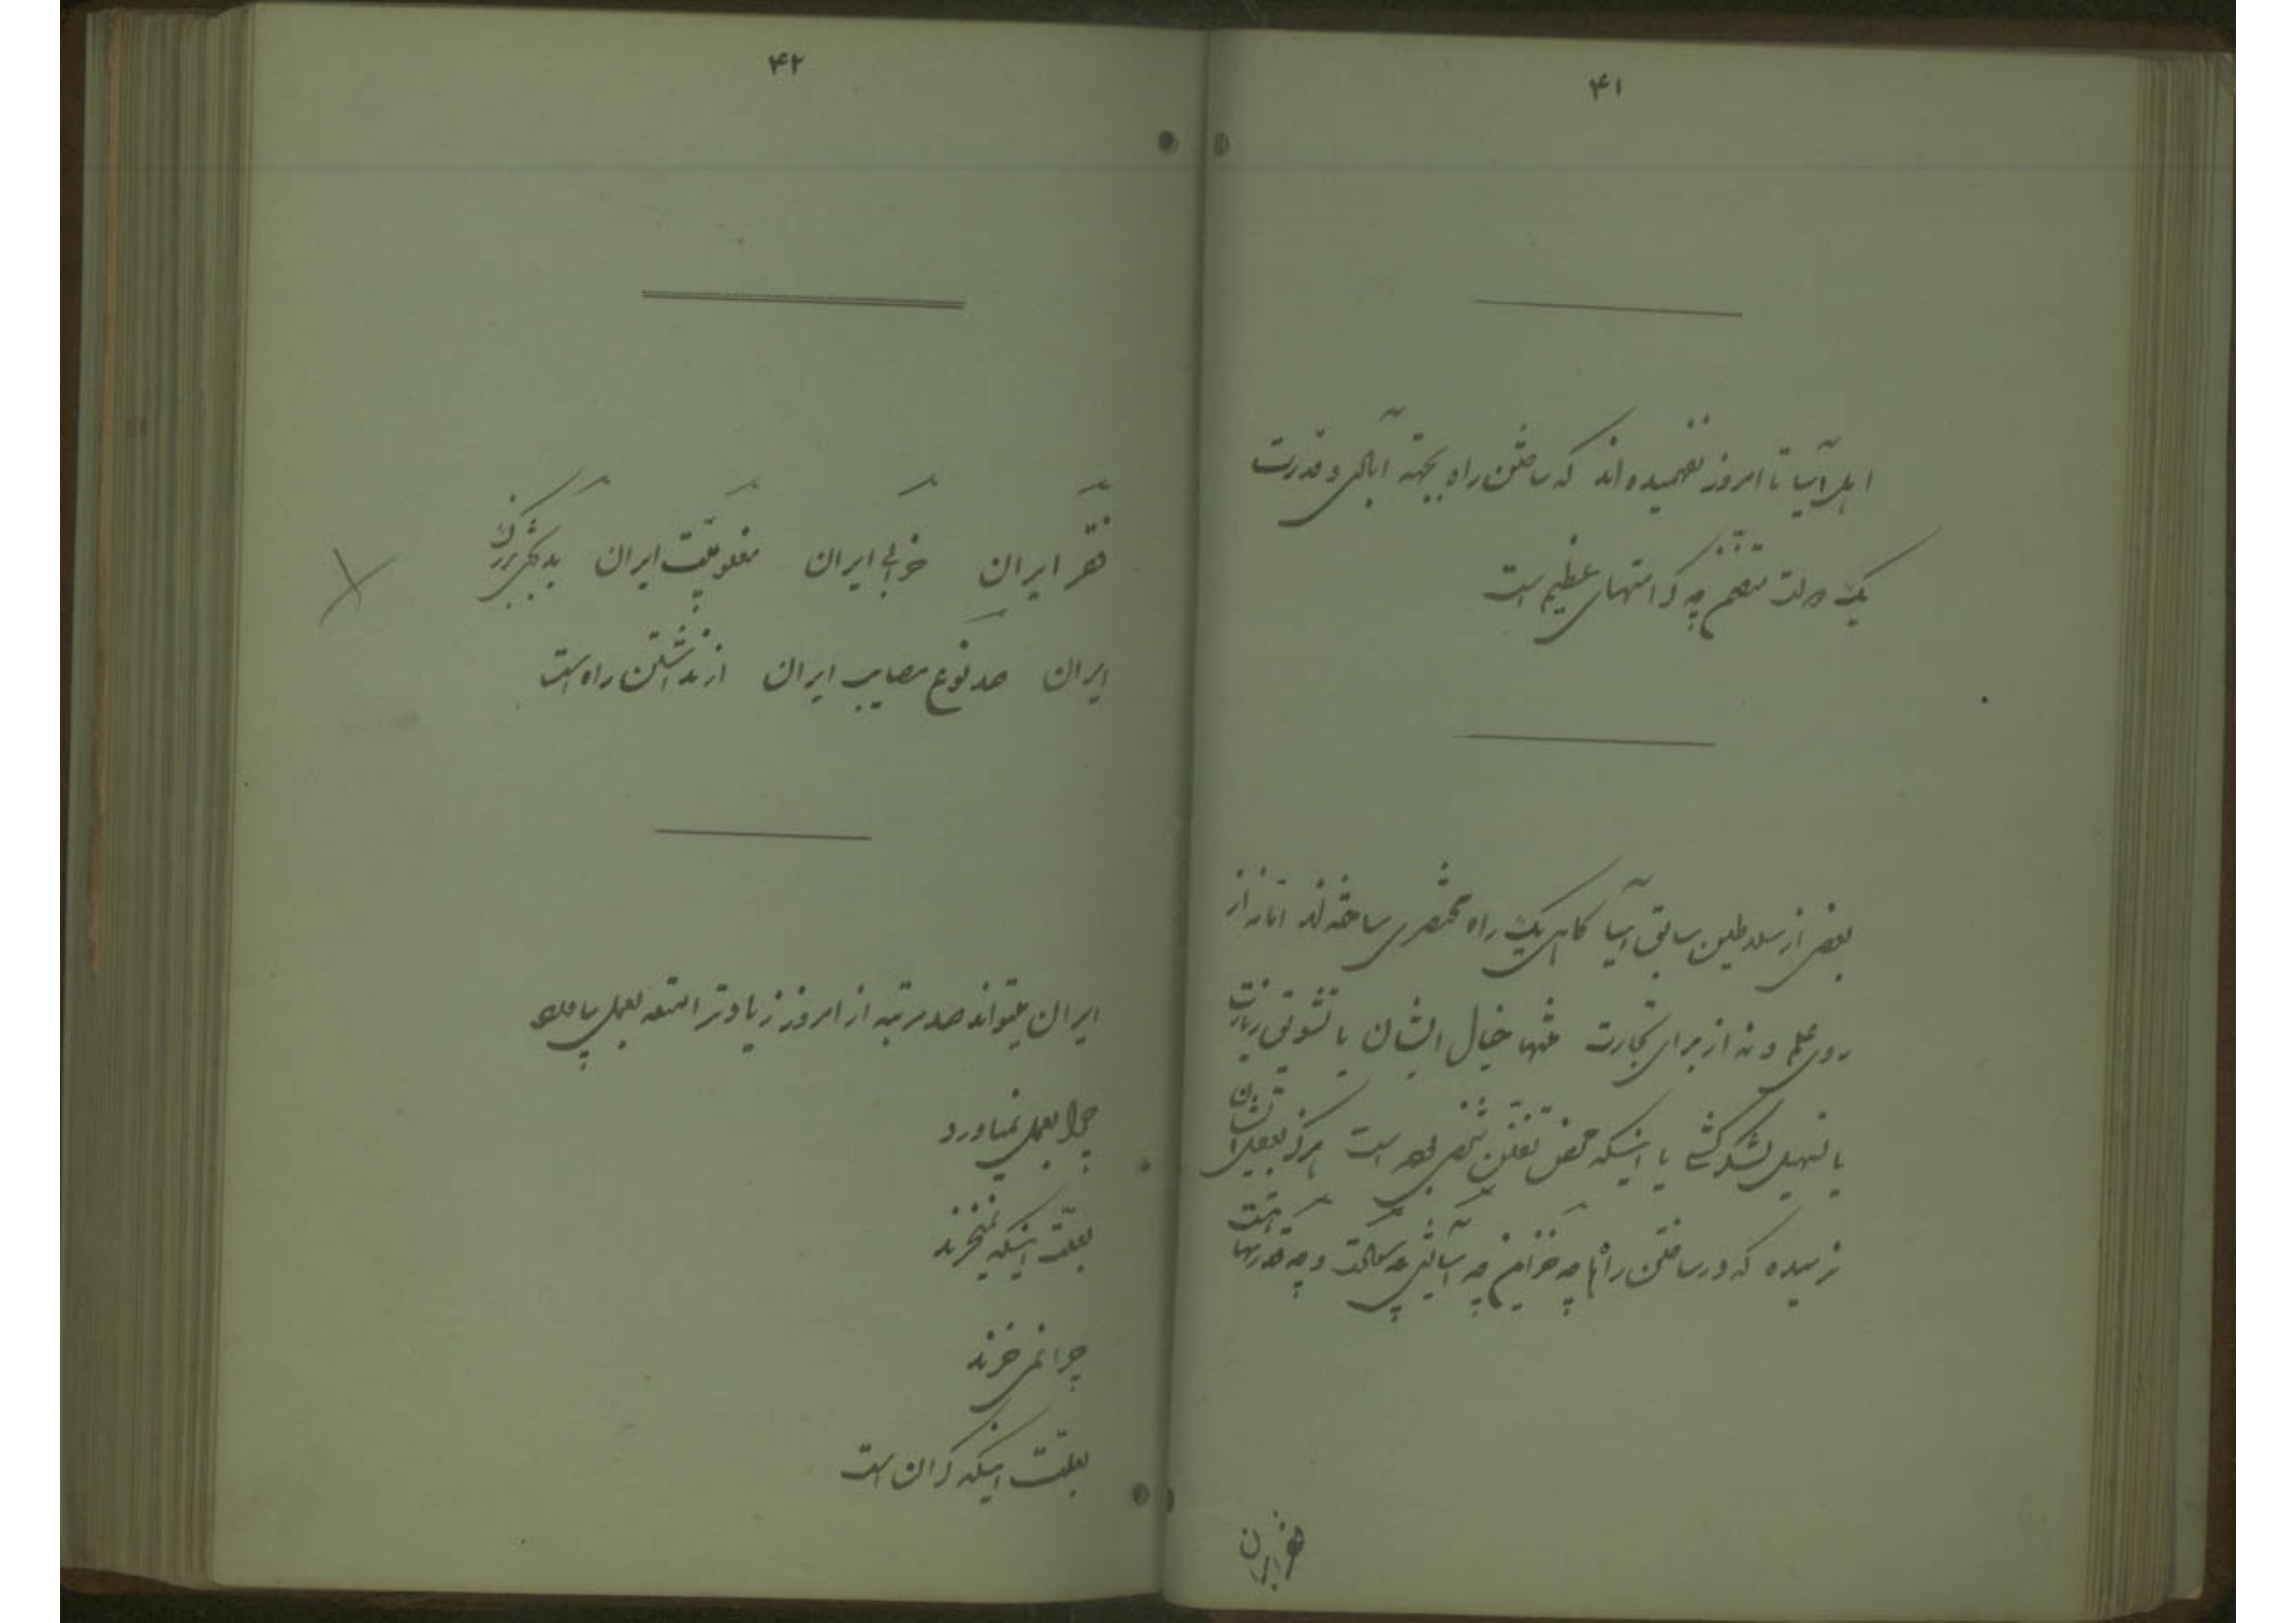 ۴۱
اهل آسیا تا امروز نفهمیده‌اند که ساختن راه بجهة آبادی و قدرت
یک دولت متضمن چه کرامتهای عظیم است
بعضی از سلاطین سابق آسیا گاهی یک راه مختصری ساخته‌اند اما نه از
روی علم و نه از برای تجارت منتها خیال ایشان یا تشویق زیارت
یا تسهیل لشکرکشی یا اینکه محض تفنن شخصی بوده است هرگز بعقل ایشان
نرسیده که در ساختن راهها چه خزاین چه آسایش چه سعادت و چه قدرتهاست
فقر ایران
۴۲
فقر ایران خرابی ایران مغلوبیت ایران بدبختی بزرگ
ایران صد نوع مصایب ایران از نداشتن راه است
ایران میتواند صد مرتبه از امروز زیادتر امتعه بعمل بیاورد
چرا بعمل نمیاورد
بعلت اینکه نمیخرند
چرا نمی خرند
بعلت اینکه گران است